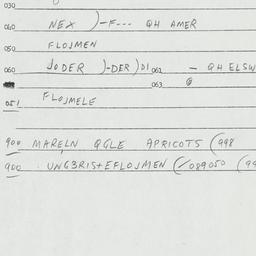 030
040 NEX )-F--- QH AMER
050 FLOJMEN
060 JODER )-DER)D1 062 - QH ELSW
063
051 FLOJMELE
900 MARELN QGLE APRICOTS (998
900 UNG3RIS+EFLOJMEN (/089050 (99